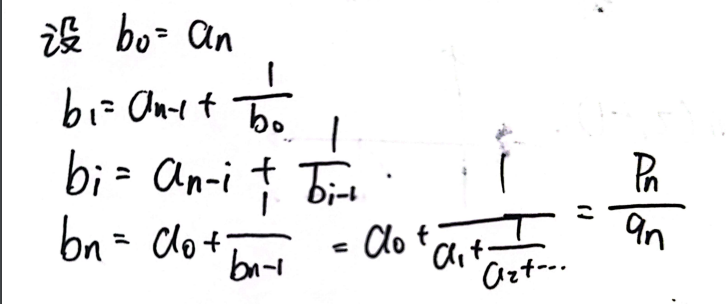 设 b₀ = aₙ
b₁ = aₙ₋₁ + 1/b₀
bᵢ = aₙ₋ᵢ + 1/bᵢ₋₁
bₙ = a₀ + 1/bₙ₋₁ = a₀ + 1/(a₁ + 1/(a₂ + ⋯)) = Pₙ/qₙ